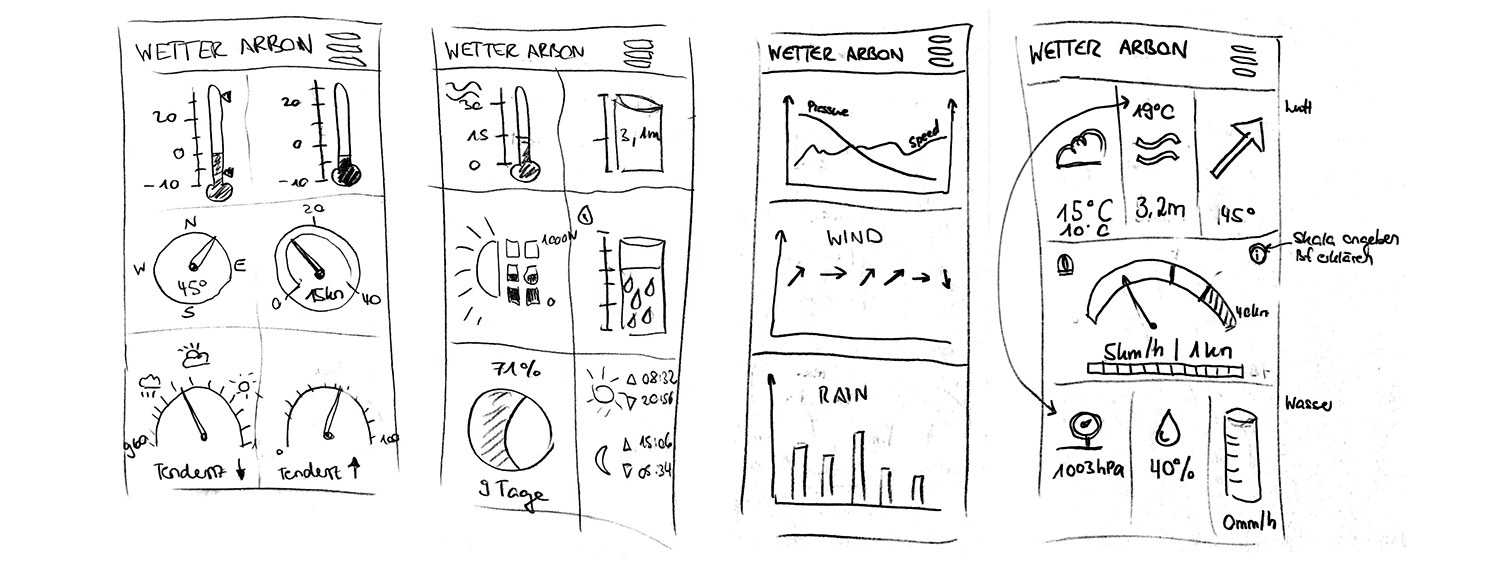 WETTER ARBON
20
0
-10
20
0
-10
N
W
E
S
45°
20
0
15kn
40
960
Tendenz
0
100
Tendenz
WETTER ARBON
30
15
0
3,1m
1000W
0
71%
9 Tage
08:32
20:56
15:06
05:34
WETTER ARBON
Pressure
Speed
WIND
RAIN
WETTER ARBON
19°C
15°C
10°C
3,2m
45°
Luft
i
Skala angeben
erklären
40kn
5km/h | 1kn
Wasser
1003hPa
40%
0mm/h